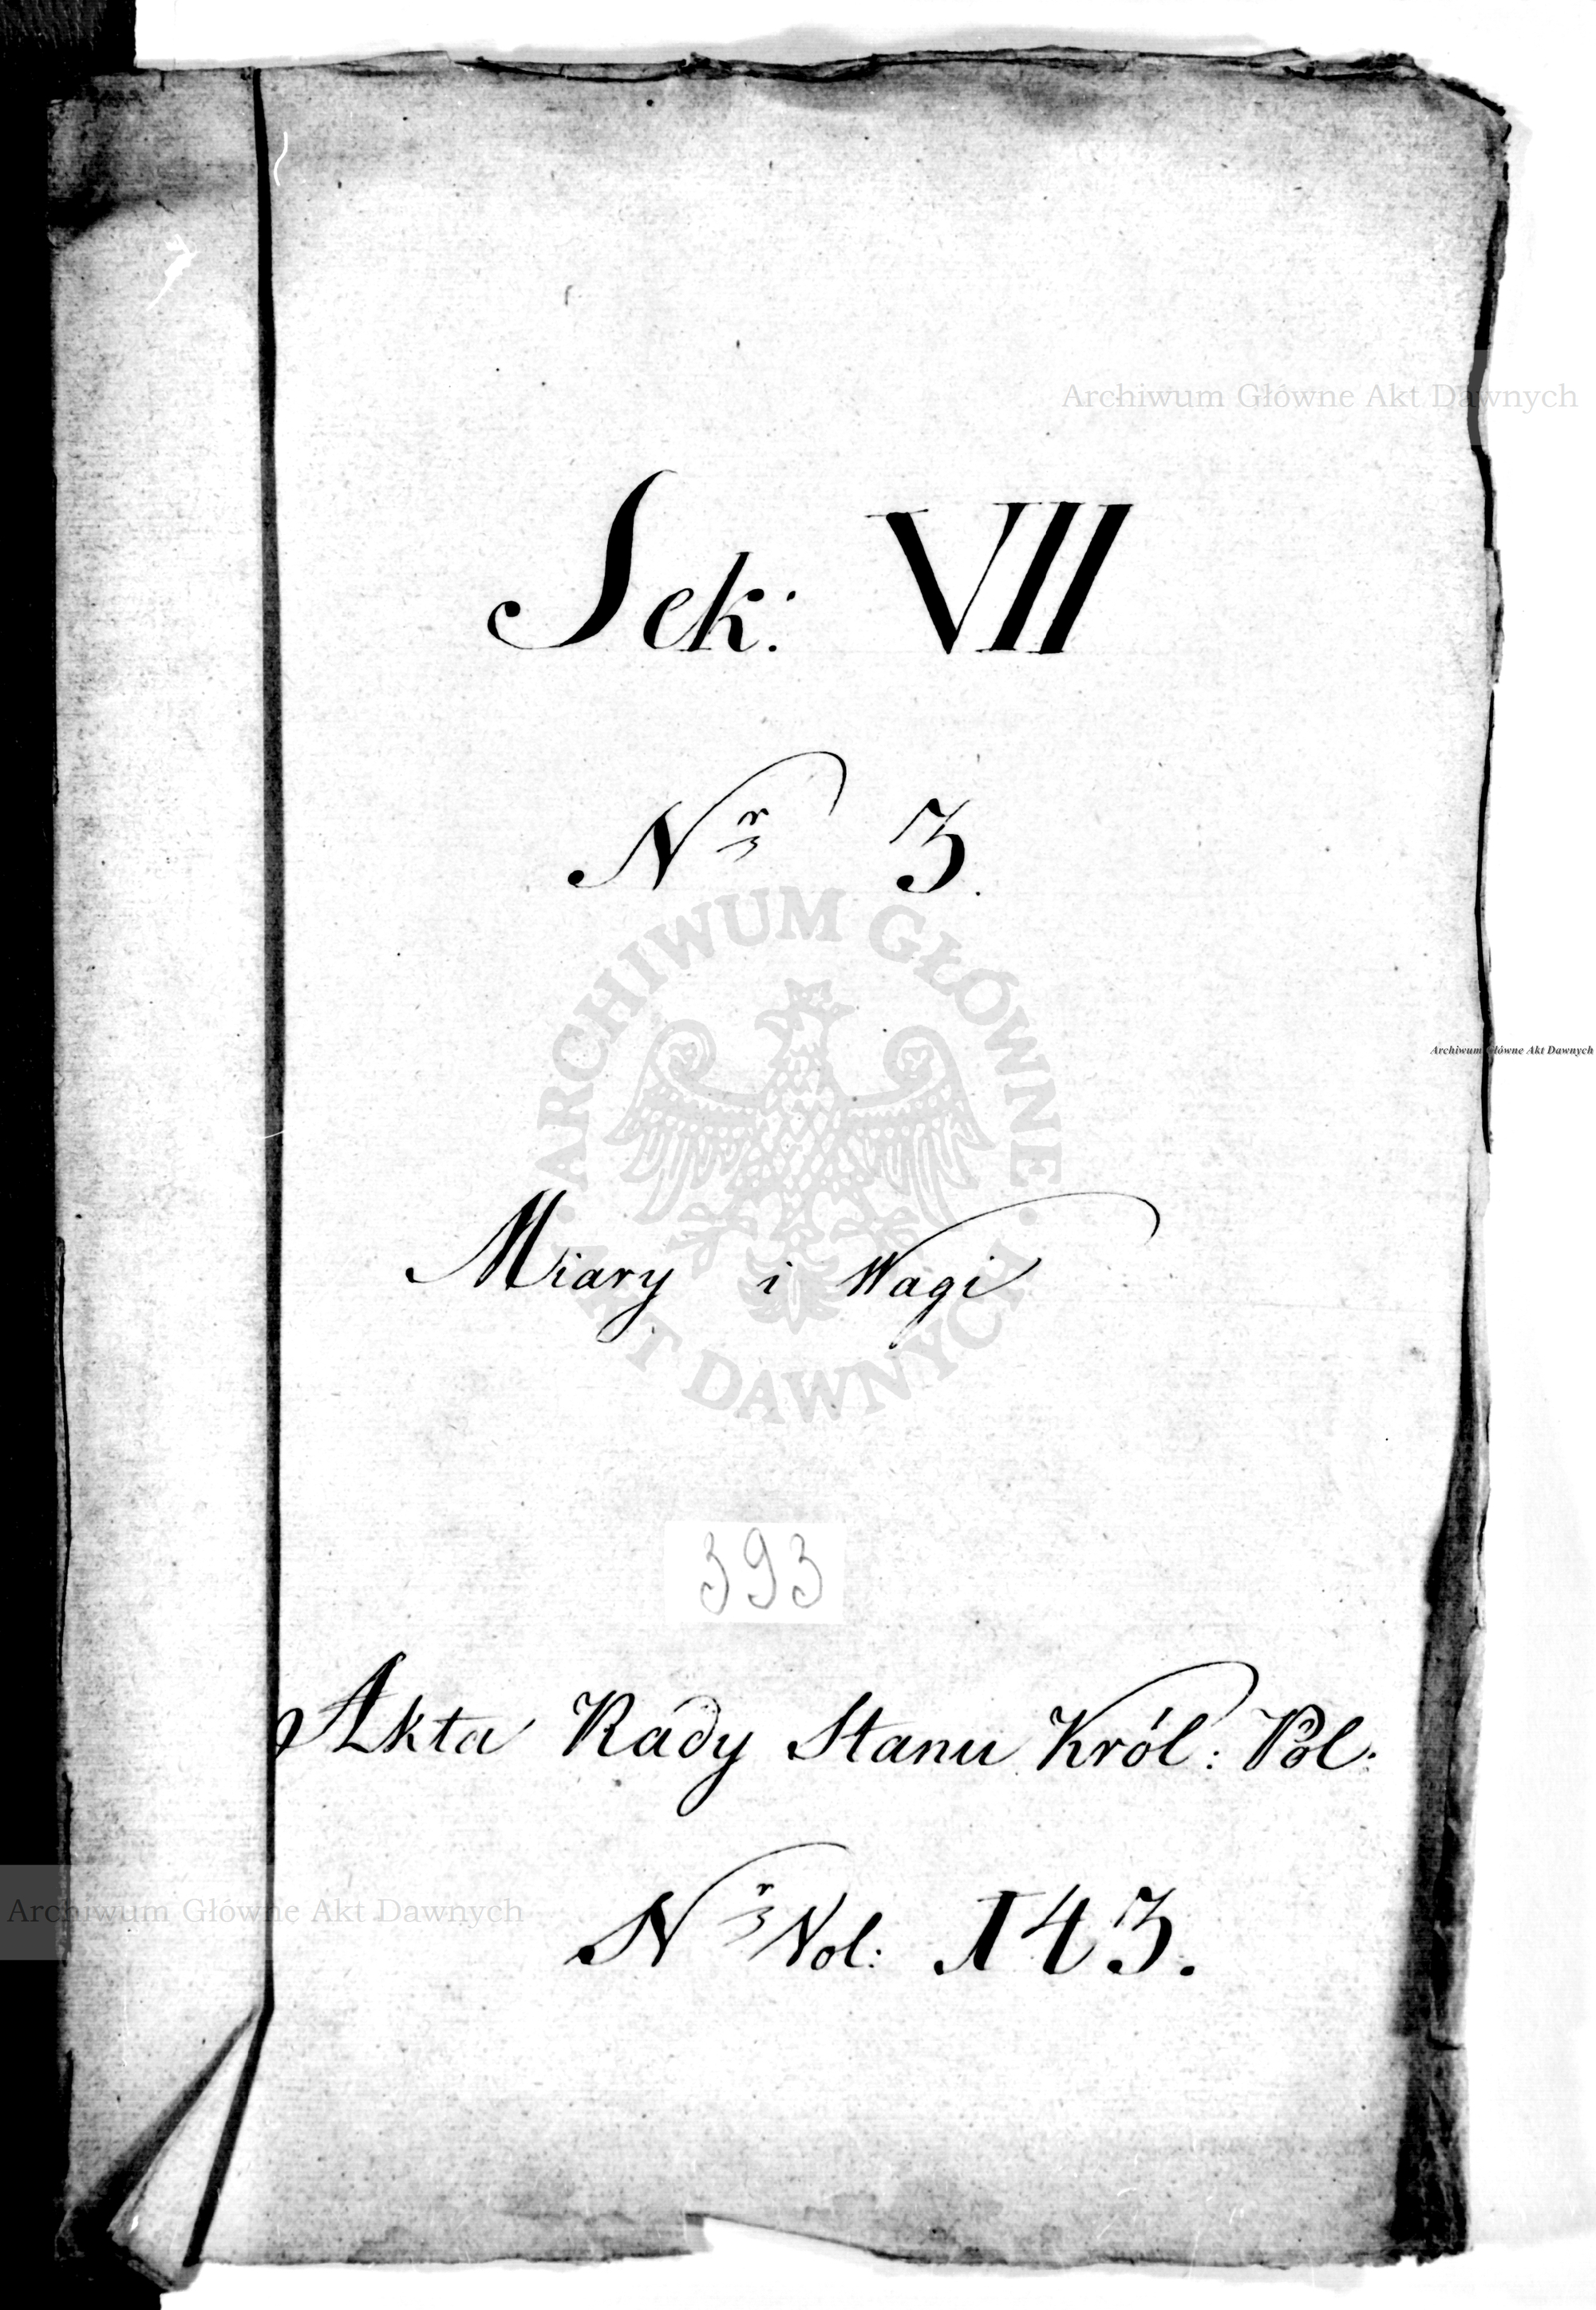 Archiwum Główne Akt Dawnych
Sek: VII
Nr 3.
ARCHIWUM GŁÓWNE AKT DAWNYCH
Archiwum Główne Akt Dawnych
Miary i Wagi
393
Akta Rady Stanu Król: Pol:
Nr Vol: 143.
Archiwum Główne Akt Dawnych